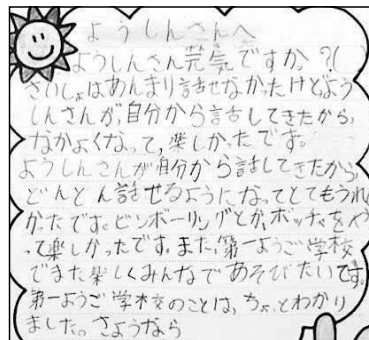 ようしんさんへ
ようしんさん元気ですか?!
さいしょはあんまり話せなかったけど、よう
しんさんが、自分から話してきたから、
なかよくなって、楽しかったです。
ようしんさんが自分から話してきたから、
どんどん話せるようになってとてもうれ
かったです。ピンボーリングとか、ボッチャをや
って楽しかったです。また、第一ようご学校
でまた楽しくみんなであそびたいです。
第一ようご学校のことは、ちょっとわかり
ました。さようなら